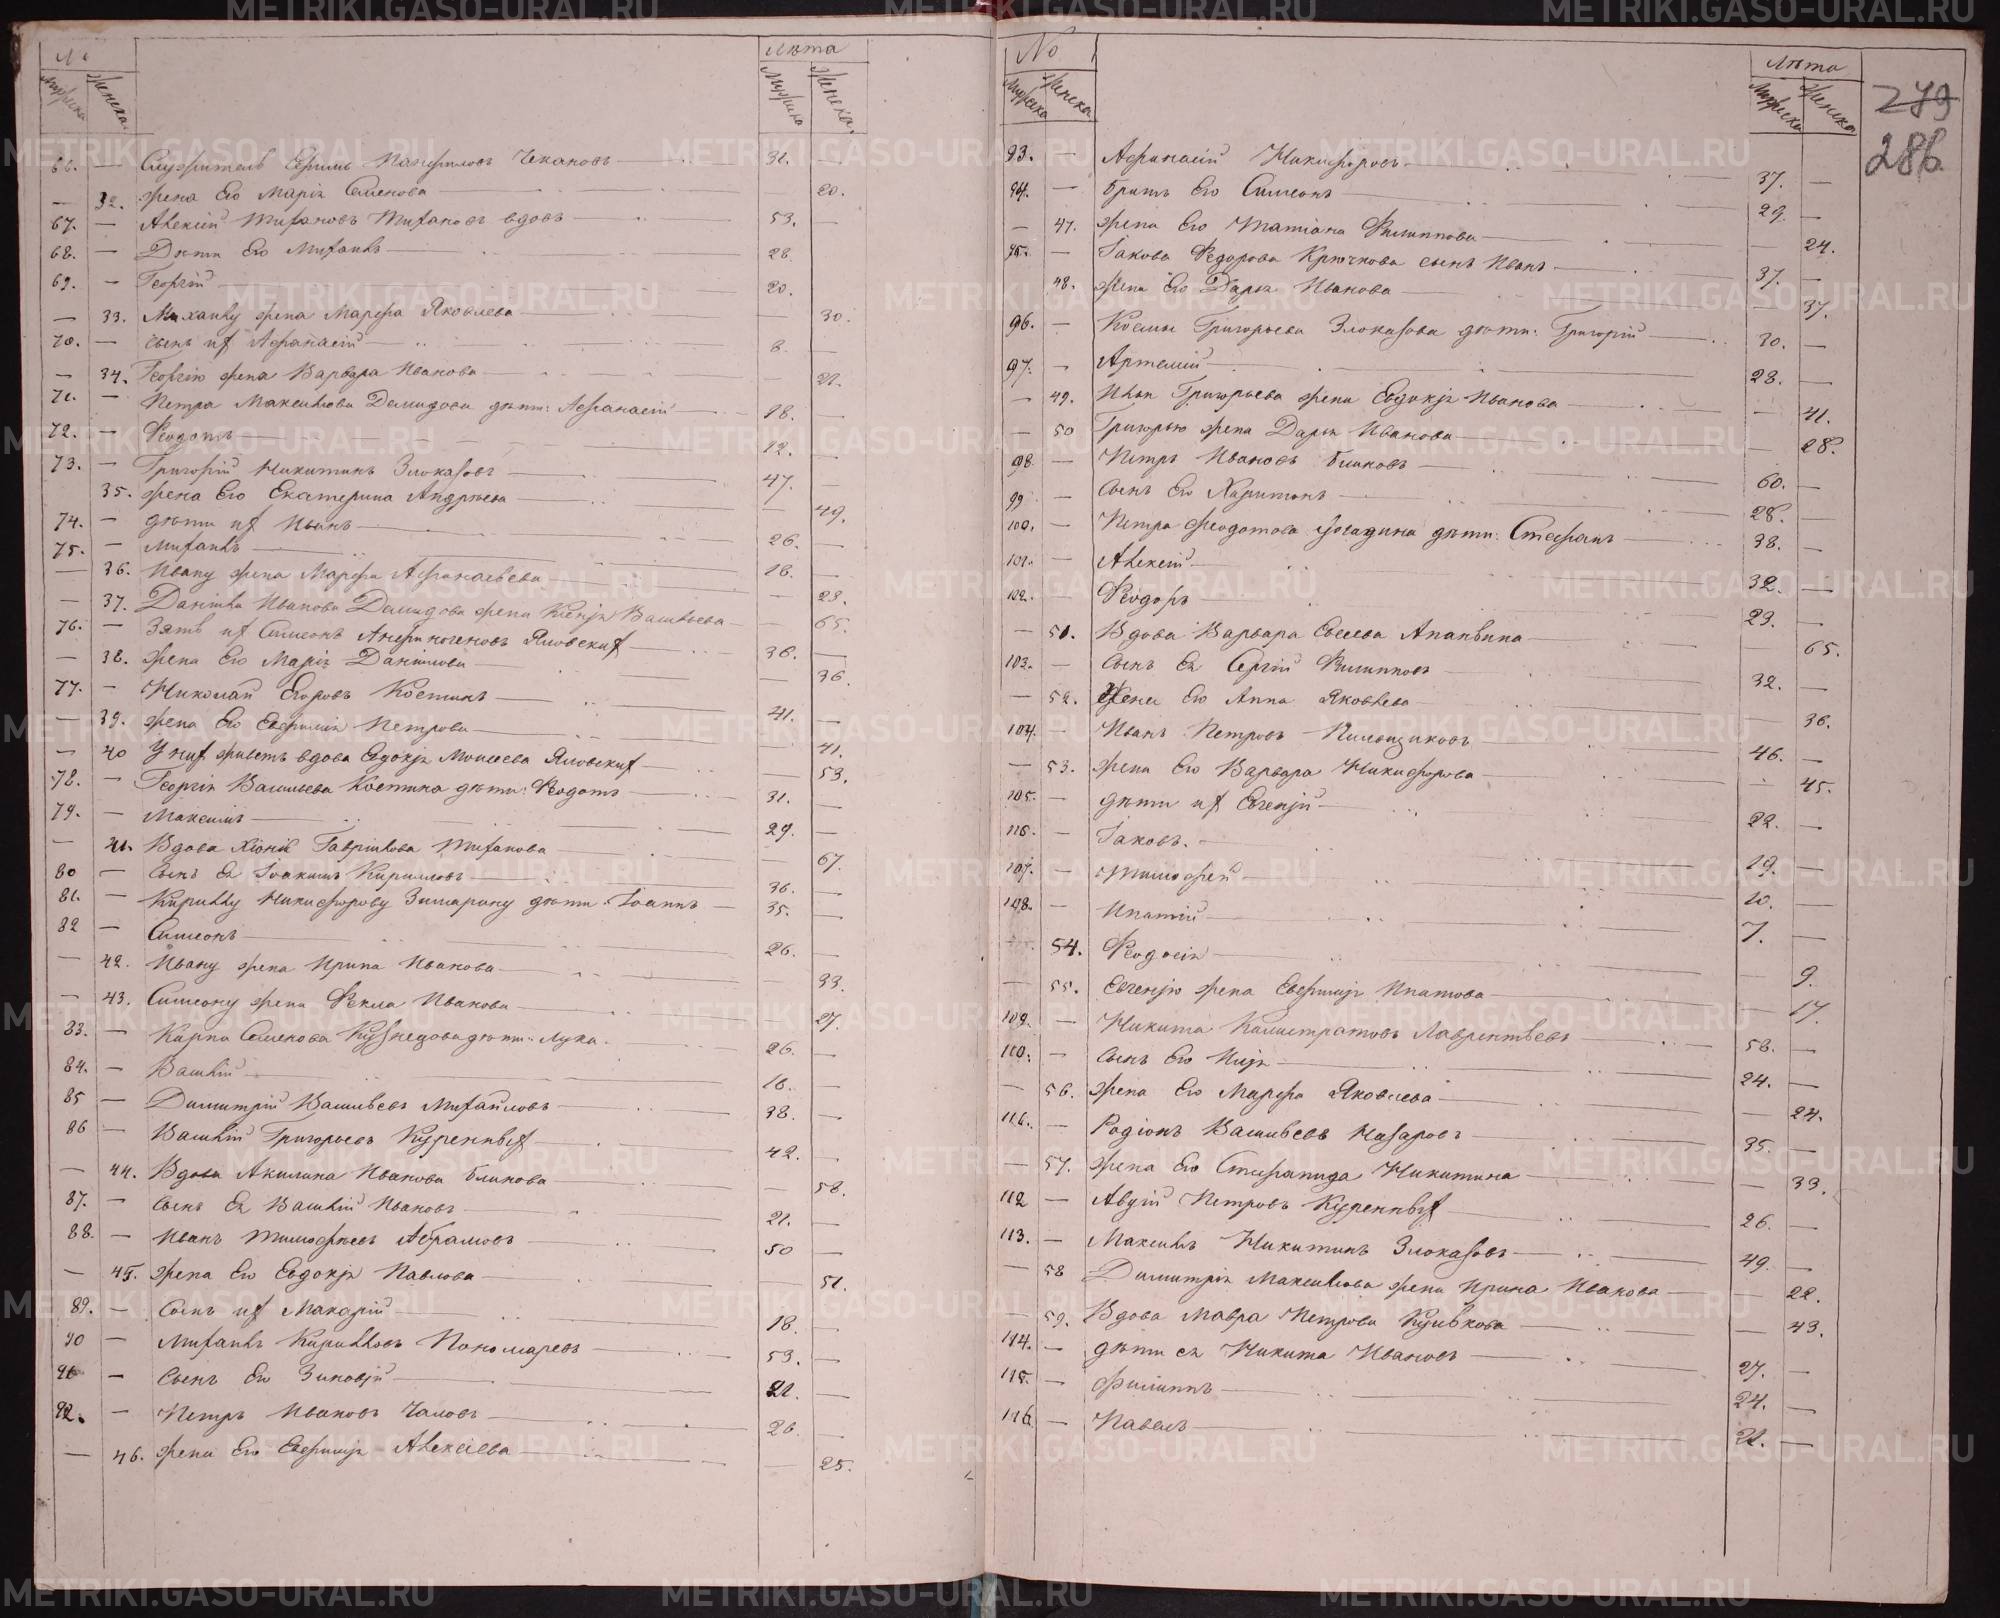 №
Мужска
Женска.
Лѣта
Мужска
Женска.
66. — Служитель Ефимъ Панфиловъ Чекановъ — 31. —
— 32. жена Его Марія Семенова — 20.
67. — Алексій Титановъ вдовъ — 53. —
68. — Дѣти Его Михаилъ — 28.
69. — Георгій — 20. —
— 33. Михаилу жена Марфа Яковлева — 30.
70. — сынъ их Афанасій — 8. —
— 34. Георгію жена Варвара Иванова — 21.
71. — Петра Максимова Демидова дѣти: Афанасій — 18. —
72. — Ѳеодотъ — 12. —
73. — Григорій Никитинъ Злоказовъ — 47. —
35. жена Его Екатерина Андреева — 49.
74. — дѣти их Иванъ — 26. —
75. — Михаилъ — 18. —
— 36. Ивану жена Марфа Афанасьева — 23.
— 37. Даніила Иванова Демидова жена Ксенія Васильева — 65.
76. — Зять их Симеонъ Анфиногеновъ Яловских — 36. —
— 38. жена Его Марія Даніилова — 36.
77. — Николай Егоровъ Костинъ — 41. —
— 39. жена Его Евфимія Петрова — 41.
— 40 У них живетъ вдова Евдокія Моисеева Яловских — 53.
78. — Георгія Васильева Костина дѣти: Ѳеодотъ — 31. —
79. — Максимъ — 29. —
— 41. Вдова Хіонія Гавриилова Титанова — 67.
80 — Сынъ Ея Іоакимъ Кириловъ — 36. —
81. — Кириллу Никифорову Зимарину дѣти: Іоаннъ — 35. —
82 — Симеонъ — 26. —
— 42. Ивану жена Ирина Иванова — 33.
— 43. Симеону жена Ѳекла Иванова — 27.
83. — Карпа Семенова Кузнецова дѣти: Лука — 26. —
84. — Василій — 18. —
85 — Димитрій Васильевъ Михайловъ — 38. —
86 — Василій Григорьевъ Куренных — 42. —
— 44. Вдова Акилина Иванова Блинова — 58.
87. — Сынъ Ея Василій Ивановъ — 21. —
88. — Иванъ Тимофеевъ Абрамовъ — 50 —
— 45. жена Его Евдокія Павлова — 51.
89. — Сынъ их Макарій — 18. —
90 — Михаилъ Кирилловъ Пономаревъ — 53. —
91 — Сынъ Его Зиновій — 21. —
92. — Петръ Ивановъ Чаловъ — 26. —
— 46. жена Его Евфимія Алексіева — 25.
№
Мужска
Женска
Лѣта
Мужска
Женска
279
286
93. — Афанасій Никифоровъ — 37. —
94. — Братъ Его Симеонъ — 29. —
— 47. жена Его Татіана Филиппова — 24.
95. — Іакова Ѳедорова Крючкова сынъ Иванъ — 37. —
48. жена Его Дарія Иванова — 37.
96. — Космы Григорьева Злоказова дѣти: Григорій — 30. —
97. — Артемій — 28. —
— 49. Иван Григорьева жена Евдокія Иванова — 41.
— 50 Григорью жена Дарія Иванова — 28.
98. — Петръ Ивановъ Блиновъ — 60. —
99 — Сынъ Его Харитонъ — 28. —
100. — Петра Феодотова дѣти: Стефанъ — 38. —
101. — Алексій — 32. —
102. — Ѳеодоръ — 23. —
— 51. Вдова Варвара Евсеева Ананьина — 65.
103. — Сынъ Ея Сергій Филипповъ — 32. —
— 52. Жена Его Анна Яковлева — 36.
104. — Иванъ Петровъ Пильщиковъ — 46. —
— 53. жена Его Варвара Никифорова — 45.
105. — дѣти их Евгеній — 22. —
106. — Іаковъ. — 19. —
107. — Тимофей — 10. —
108. — Ипатій — 7. —
54. Ѳеодосія — 9.
— 55. Евгенію жена Евфимія Ипатова — 17.
109. — Никита Калистратовъ Лаврентьевъ — 58. —
110. — Сынъ Его Илія — 24. —
— 56. жена Его Марфа Яковлева — 24.
111. — Родіонъ Васильевъ Назаровъ — 35. —
— 57. жена Его Стефанида Никитина — 33.
112 — Авдій Петровъ Куренных — 26. —
113. — Максимъ Никитинъ Злоказовъ — 49. —
— 58 Димитрія Максимова жена Ирина Иванова — 22.
— 59. Вдова Мавра Петрова Куликова — 43.
114. — дѣти ея Никита Ивановъ — 27. —
115. — Филиппъ — 24. —
116. — Павелъ — 21. —